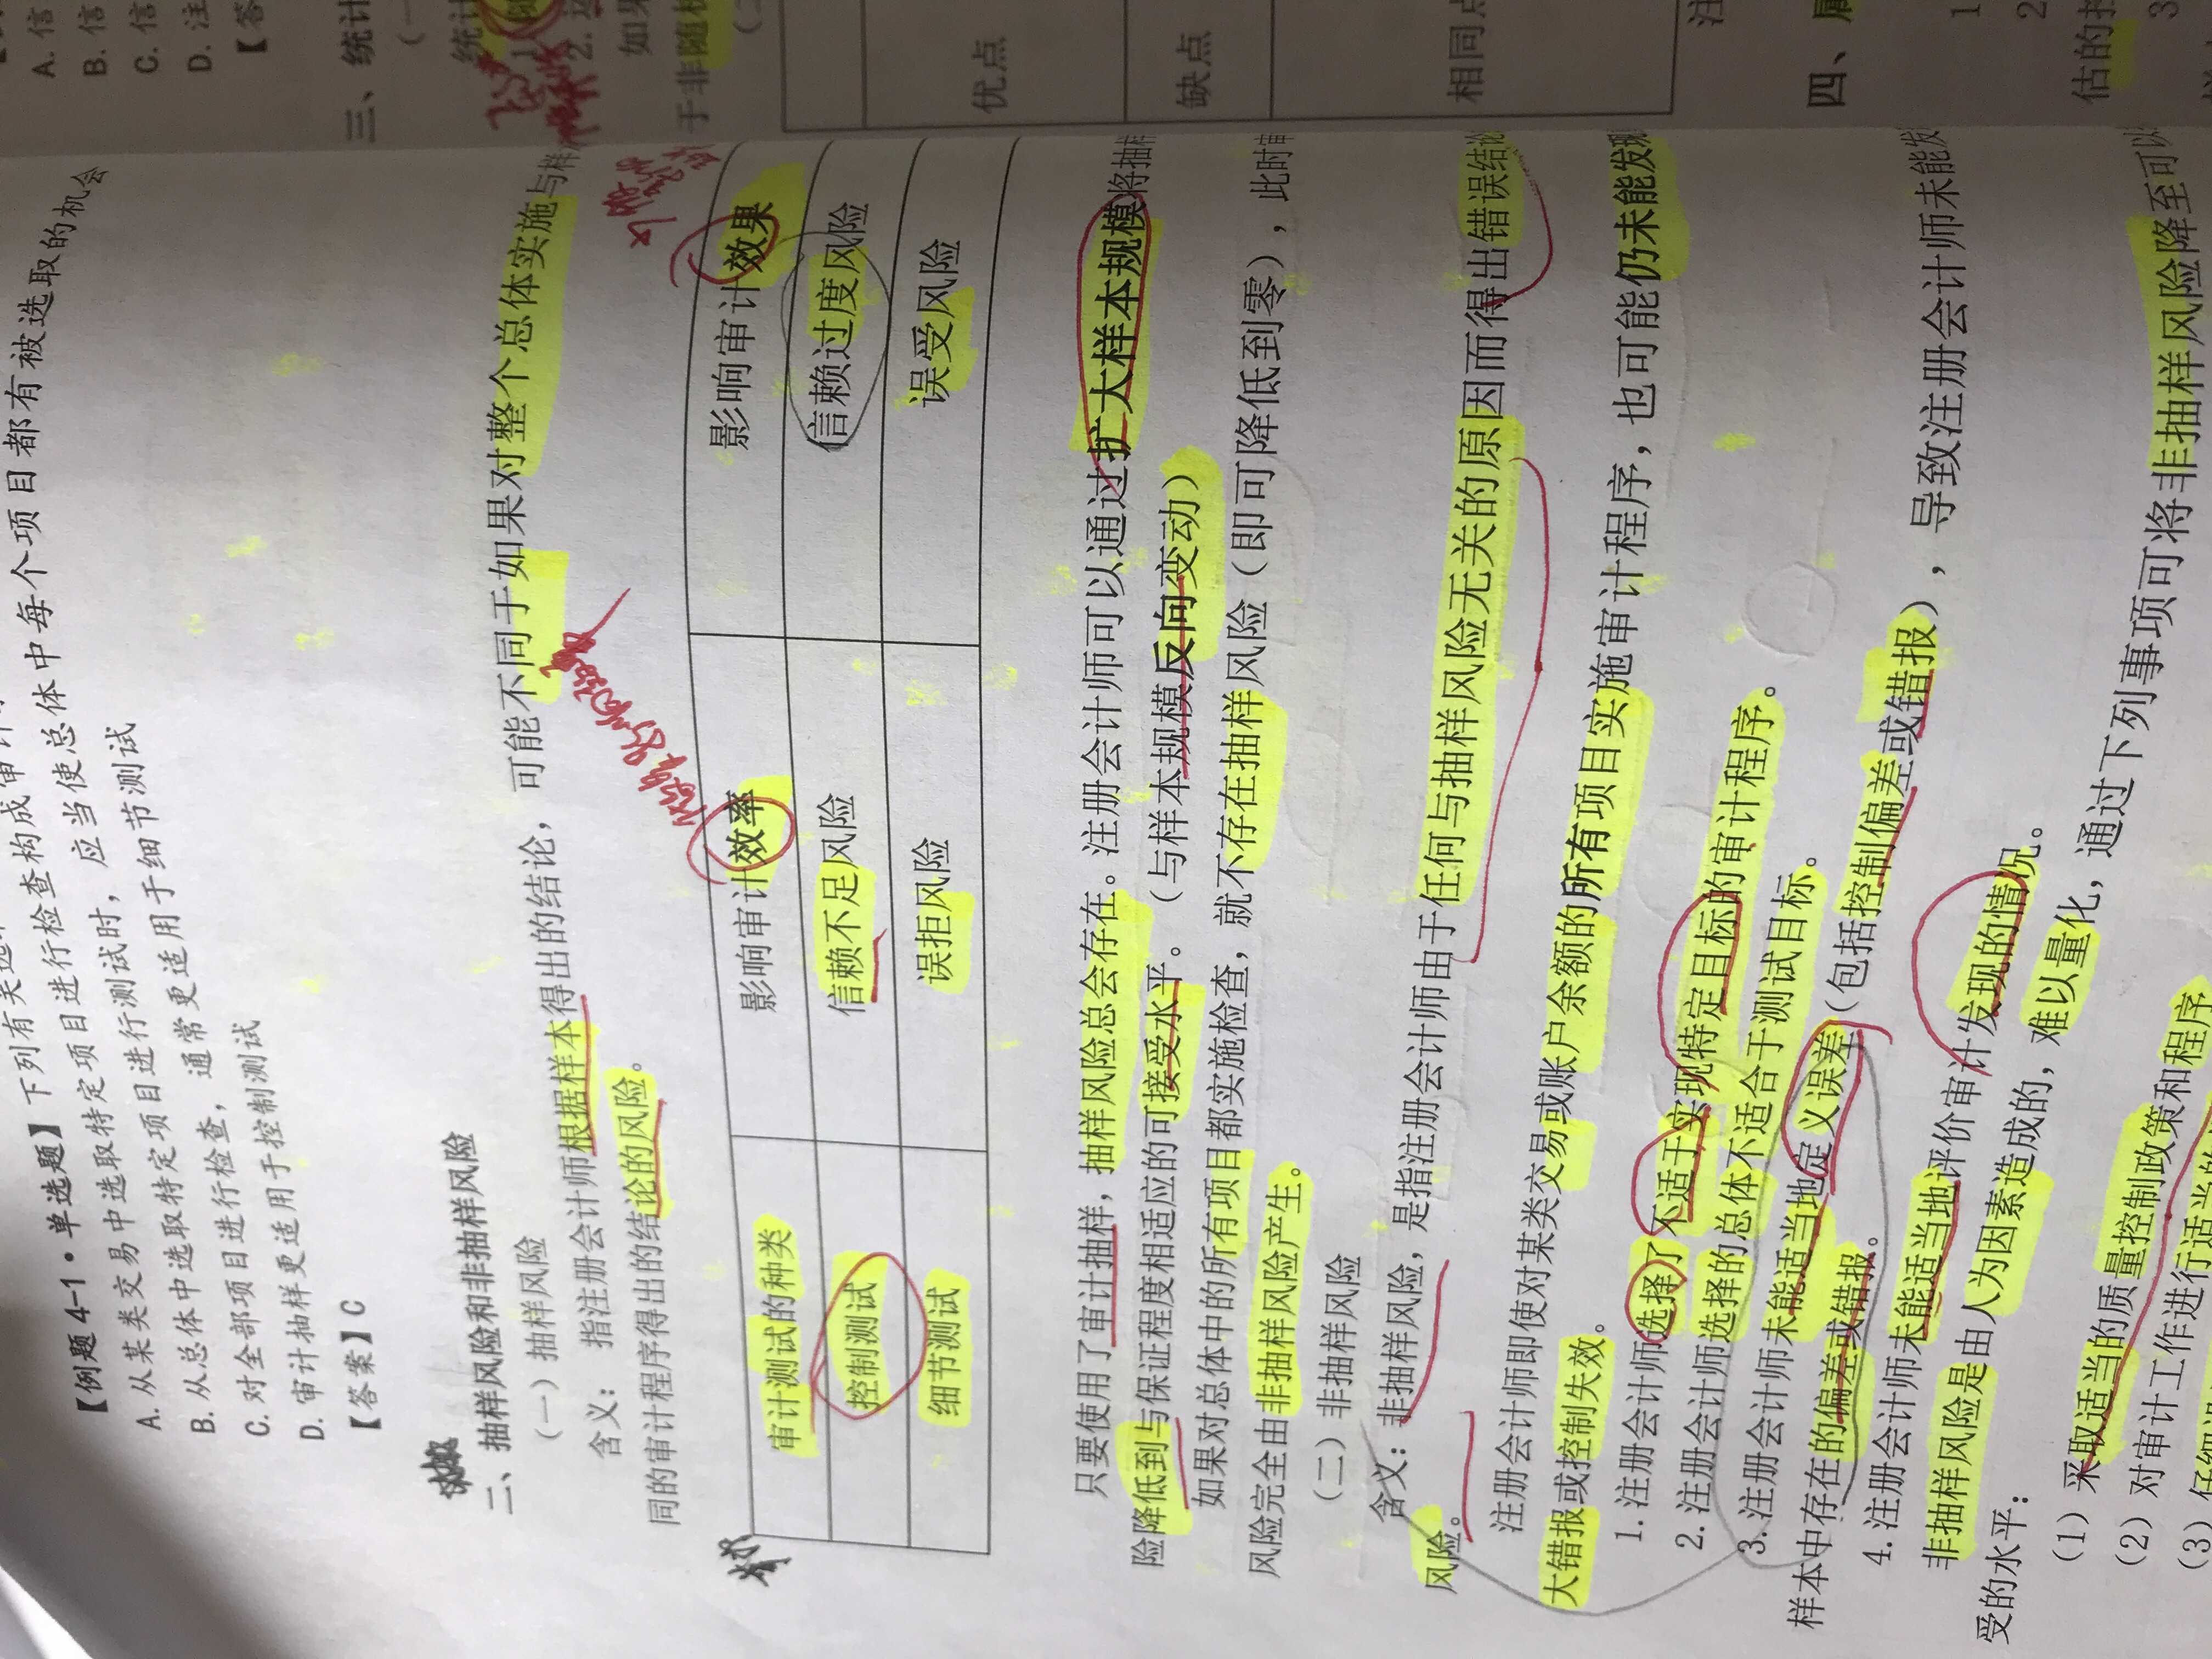 【例题 4-1·单选题】下列有关选
A. 从某类交易中选取特定项目进行检查构成审计
B. 从总体中选取特定项目进行测试时，应当使总体中每个项目都有被选取的机会
C. 对全部项目进行检查，通常更适用于细节测试
D. 审计抽样更适用于控制测试
【答案】C
二、抽样风险和非抽样风险
（一）抽样风险
含义：指注册会计师根据样本得出的结论，可能不同于如果对整个总体实施与样
同的审计程序得出的结论的风险。
审计测试的种类 影响审计效率 影响审计效果
控制测试 信赖不足风险 信赖过度风险
细节测试 误拒风险 误受风险
只要使用了审计抽样，抽样风险总会存在。注册会计师可以通过扩大样本规模将抽样
险降低到与保证程度相适应的可接受水平。（与样本规模反向变动）
如果对总体中的所有项目都实施检查，就不存在抽样风险（即可降低到零），此时审
风险完全由非抽样风险产生。
（二）非抽样风险
含义：非抽样风险，是指注册会计师由于任何与抽样风险无关的原因而得出错误结论
风险。
注册会计师即使对某类交易或账户余额的所有项目实施审计程序，也可能仍未能发现
大错报或控制失效。
1. 注册会计师选择了不适于实现特定目标的审计程序。
2. 注册会计师选择的总体不适合于测试目标。
3. 注册会计师未能适当地定义误差（包括控制偏差或错报），导致注册会计师未能发
样本中存在的偏差或错报。
4. 注册会计师未能适当地评价审计发现的情况。
非抽样风险是由人为因素造成的，难以量化，通过下列事项可将非抽样风险降至可以
受的水平：
（1）采取适当的质量控制政策和程序
（2）对审计工作进行适当的
（3）仔细设
A. 信
B. 信
C. 信
D. 注
【答
三、统计
（一
统计
2.
如果
于非随机
（二
优点
缺点
相同点
注
四、属
1
2
估的控
3